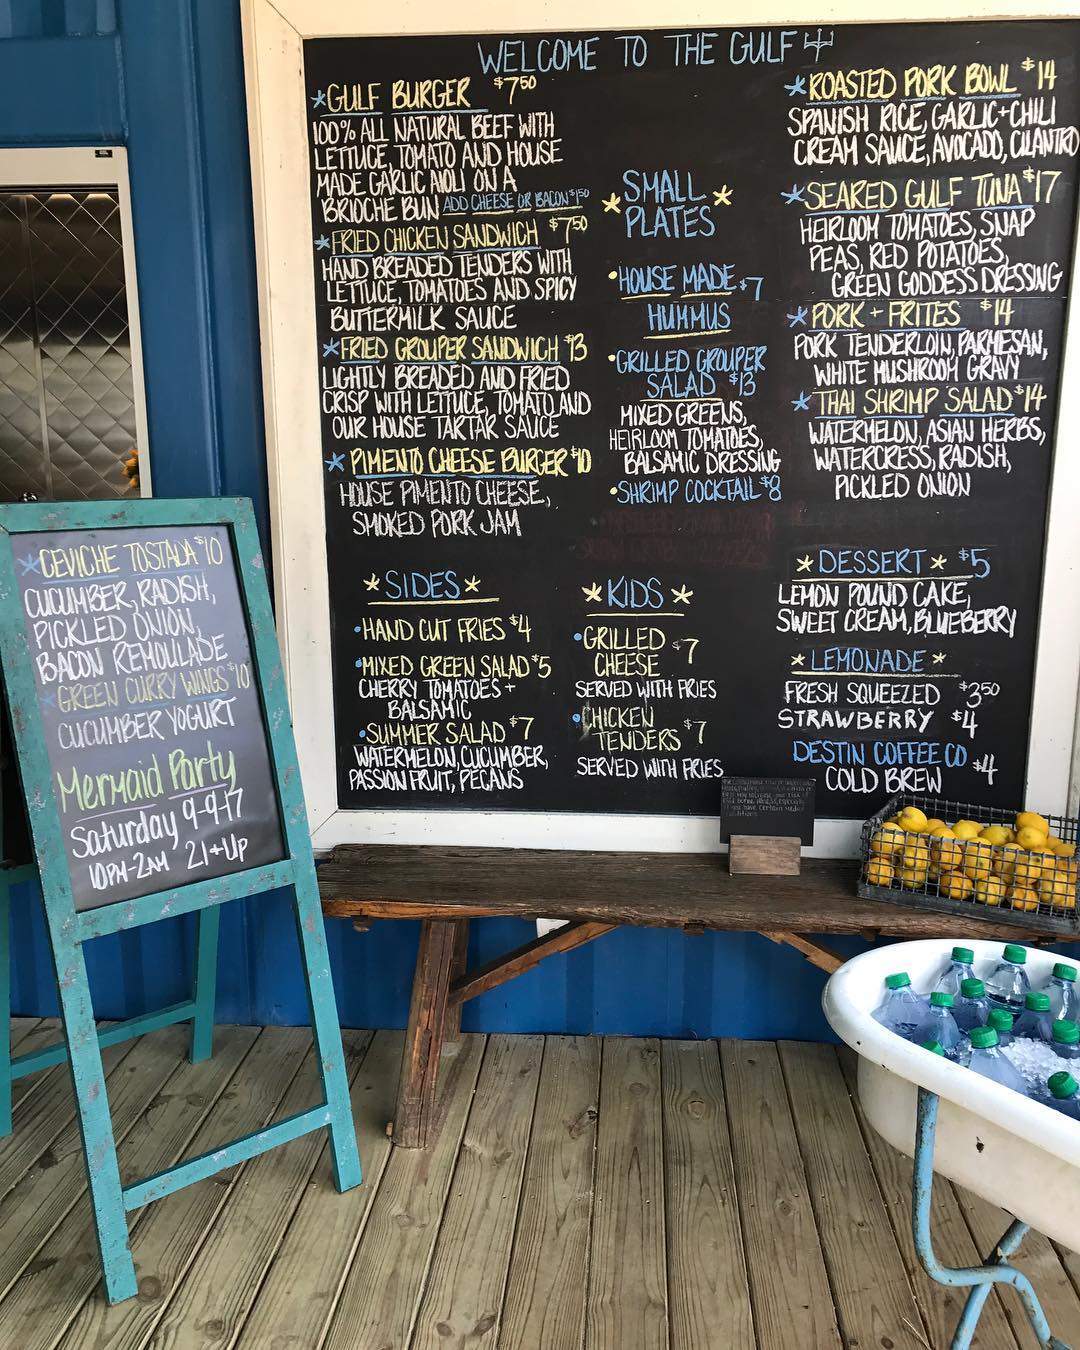 WELCOME TO THE GULF
*GULF BURGER $7.50
100% ALL NATURAL BEEF WITH
LETTUCE, TOMATO AND HOUSE
MADE GARLIC AIOLI ON A
BRIOCHE BUN ADD CHEESE OR BACON $1.50
*FRIED CHICKEN SANDWICH $7.50
HAND BREADED TENDERS WITH
LETTUCE, TOMATOES AND SPICY
BUTTERMILK SAUCE
*FRIED GROUPER SANDWICH $13
LIGHTLY BREADED AND FRIED
CRISP WITH LETTUCE, TOMATO AND
OUR HOUSE TARTAR SAUCE
*PIMENTO CHEESE BURGER $10
HOUSE PIMENTO CHEESE,
SMOKED PORK JAM
*SIDES*
•HAND CUT FRIES $4
•MIXED GREEN SALAD $5
CHERRY TOMATOES +
BALSAMIC
•SUMMER SALAD $7
WATERMELON, CUCUMBER,
PASSION FRUIT, PECANS
*SMALL
PLATES*
•HOUSE MADE $7
HUMMUS
•GRILLED GROUPER
SALAD $13
MIXED GREENS,
HEIRLOOM TOMATOES,
BALSAMIC DRESSING
•SHRIMP COCKTAIL $8
*KIDS*
•GRILLED $7
CHEESE
SERVED WITH FRIES
•CHICKEN
TENDERS $7
SERVED WITH FRIES
*ROASTED PORK BOWL $14
SPANISH RICE, GARLIC+CHILI
CREAM SAUCE, AVOCADO, CILANTRO
*SEARED GULF TUNA $17
HEIRLOOM TOMATOES, SNAP
PEAS, RED POTATOES,
GREEN GODDESS DRESSING
*PORK + FRITES $14
PORK TENDERLOIN, PARMESAN,
WHITE MUSHROOM GRAVY
*THAI SHRIMP SALAD $14
WATERMELON, ASIAN HERBS,
WATERCRESS, RADISH,
PICKLED ONION
*DESSERT* $5
LEMON POUND CAKE,
SWEET CREAM, BLUEBERRY
*LEMONADE*
FRESH SQUEEZED $3.50
STRAWBERRY $4
DESTIN COFFEE CO $4
COLD BREW
*CEVICHE TOSTADA $10
CUCUMBER, RADISH,
PICKLED ONION,
BACON REMOULADE
*GREEN CURRY WINGS $10
CUCUMBER YOGURT
Mermaid Party
Saturday 9-9-17
10PM-2AM 21+UP